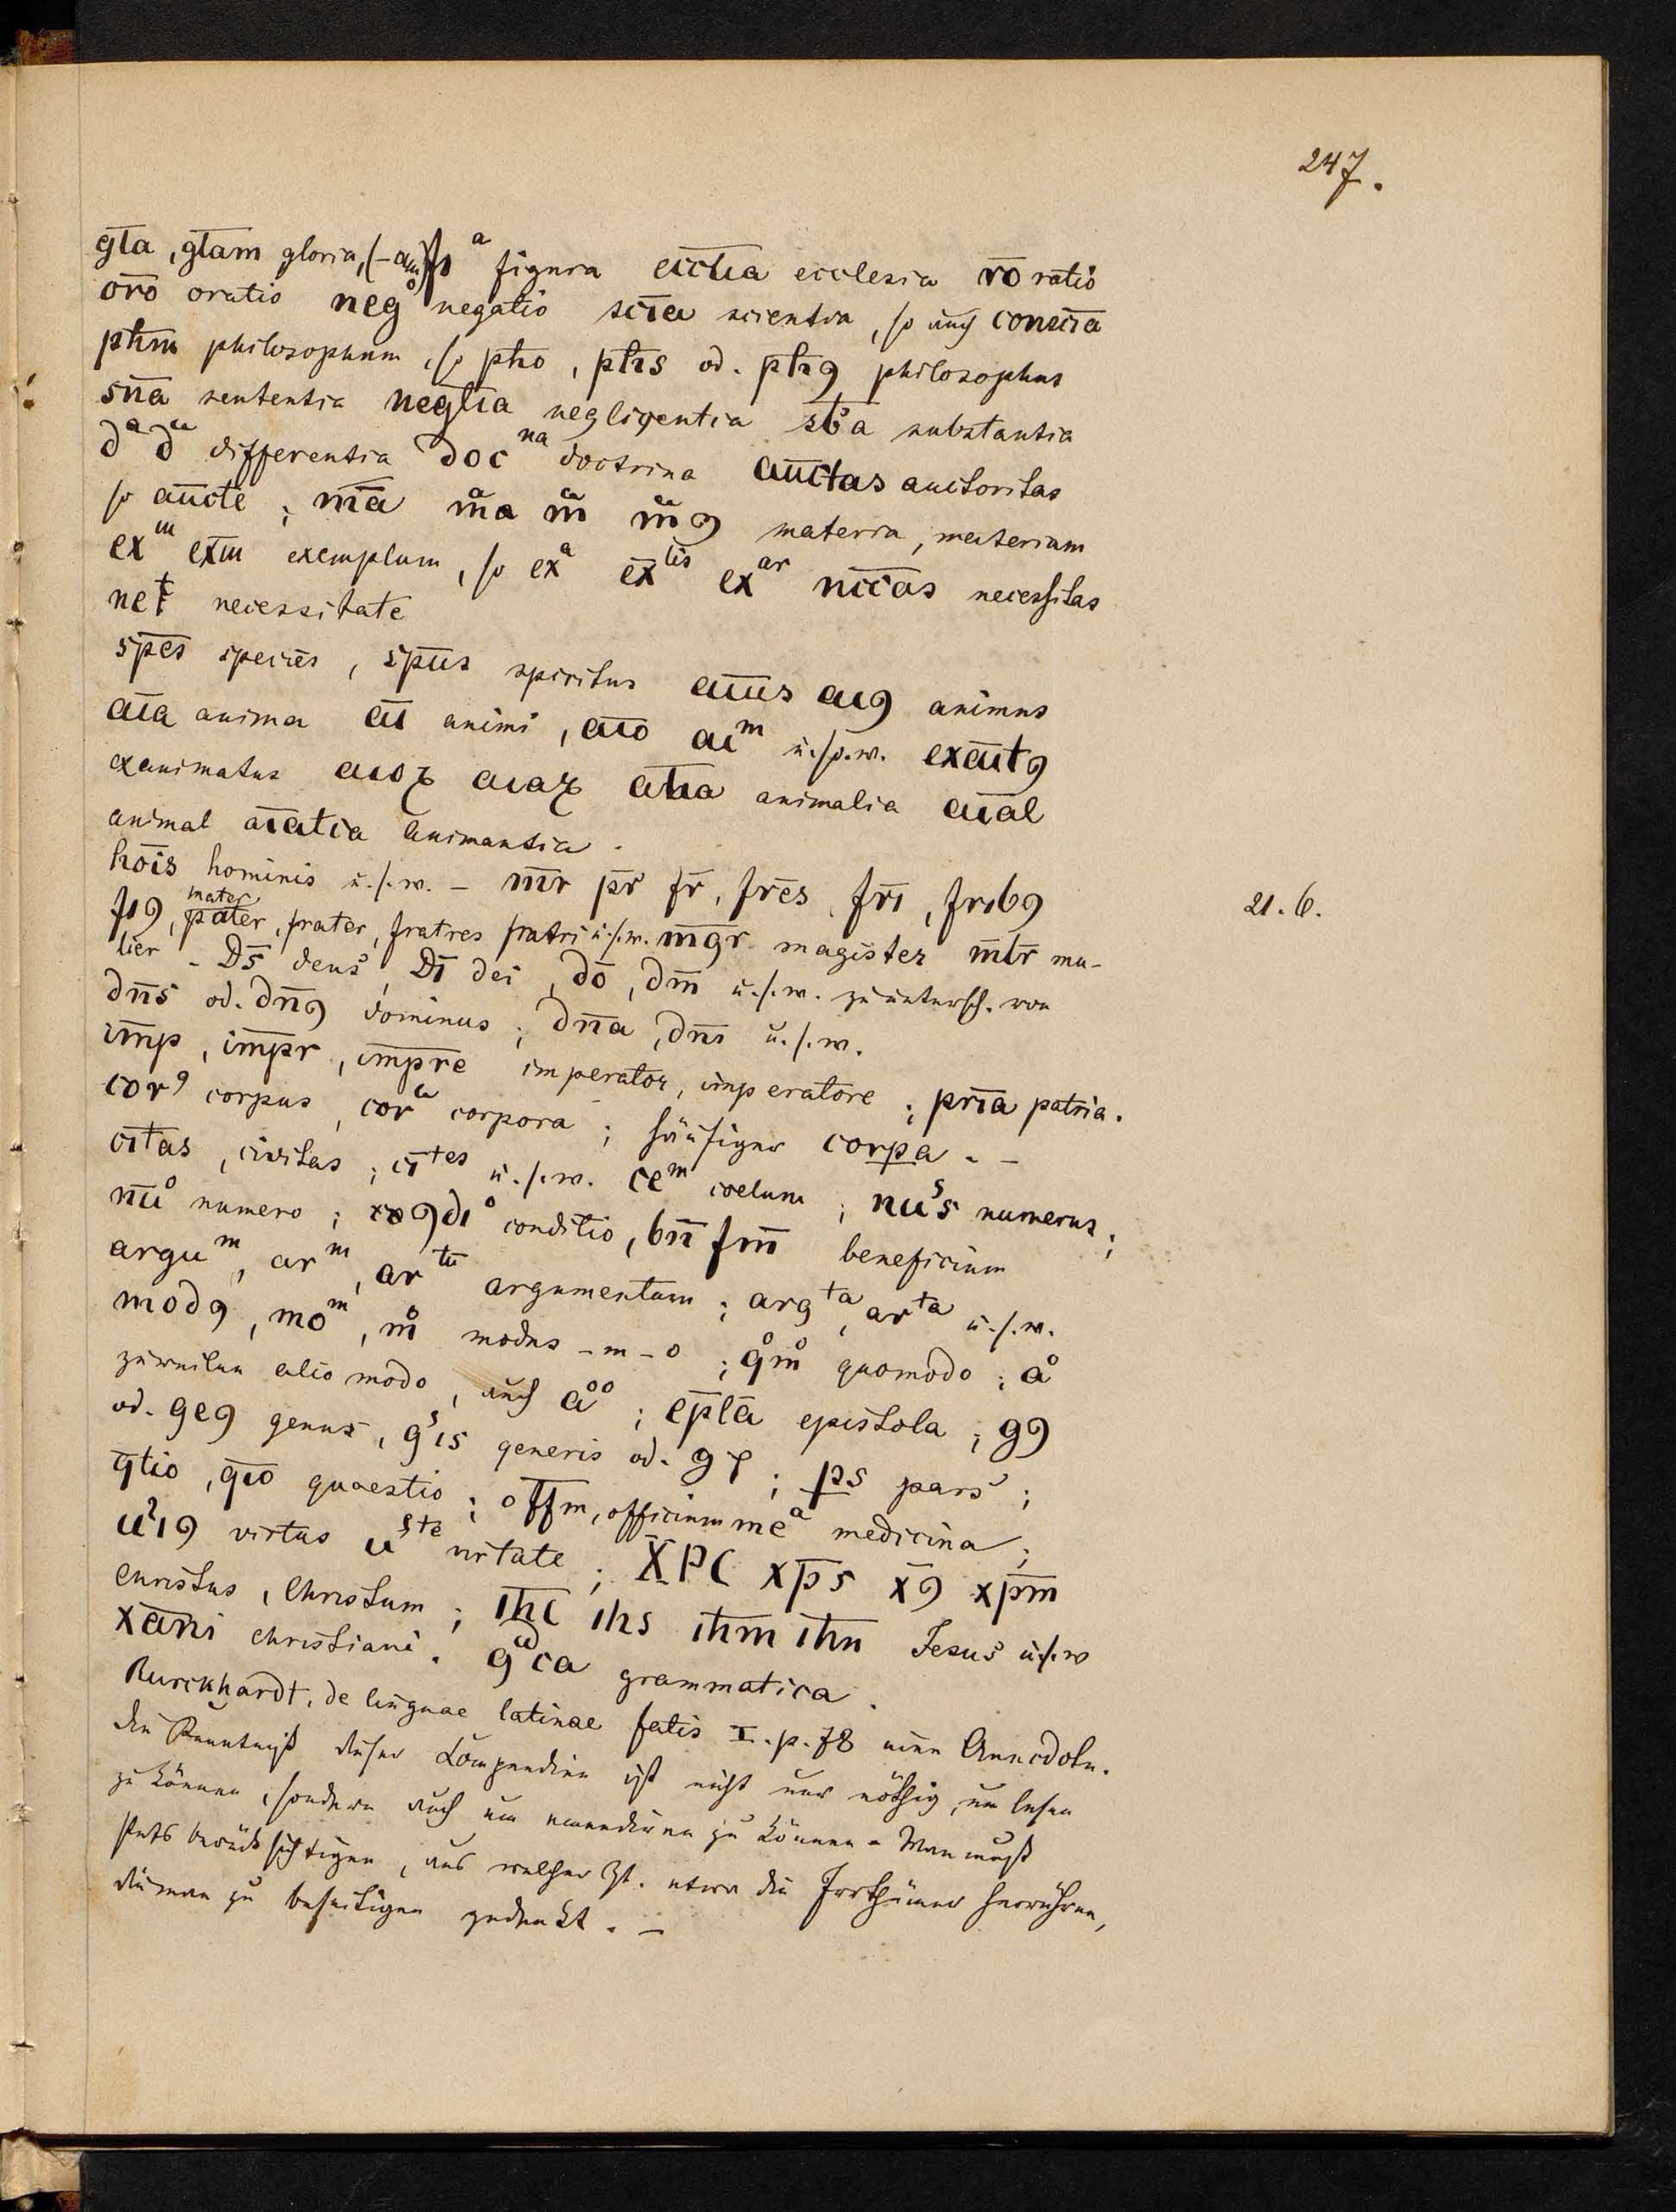 247.
gl̅a, gl̅am gloria, (-am) fıᵃ figura ecclı̅a ecclesia ro̅ ratio
oro̅ oratio negᵒ negatio sci̅a scientia, so auch consci̅a
ph̅m philosophum, so ph̅o, ph̅s od. ph̅ꝯ philosophus
sn̅a sententia negli̅a negligentia sb̅a substantia
dᵃ dᵃ differentia docⁿᵃ doctrina auc̅tas auctoritas
so auc̅te; m̅a m̅a m̅ m̅ꝯ materia, materiam
exᵐ exm̅ exemplum, so exᵃ ex̅ˡⁱˢ exᵃʳ ncc̅as necessitas
neᵗ necessitate
sp̅es species, sp̅us spiritus an̅us aıꝯ animus
aı̅a anima aı̅ animi, aı̅o aıᵐ u.s.w. exaı̅tꝯ
exanimatus aıoꝝ aıaꝝ al̅ıa animalia aı̅al
animal aı̅atıa animantia.
ho̅is hominis u.s.w. – mr̅ pr̅ fr̅, fre̅s, frı̅, frıbꝯ 21. 6.
mater
frꝯ, pater, frater, fratres patri u.s.w. mg̅r magister ml̅r mu-
lier – Ds̅ deus, Dı̅ dei, do̅, dm̅ u.s.w. zu untersch. von
dn̅s od. dn̅ꝯ dominus; dn̅a, dn̅ı u.s.w.
im̅p, im̅pr, im̅pre imperator, imperatore; pr̅ıa patria.
corꝰ corpus, corᵃ corpora; häufiger corpa. –
cı̅tas, civitas; cı̅ᵗᵉˢ u.s.w. ceᵐ coelum; nuˢs numerus;
nu̅ᵒ numero; ꝯdıᵒ conditio, bn̅ fm̅ beneficium
arguᵐ, arᵐ, arᵗᵘ̅ argumentum; argᵗᵃ, arᵗᵃ u.s.w.
modꝯ, moᵐ, mᵒ modus -m -o; qᵒmᵒ quomodo; aᵒ
zuweilen alio modo, auch aᵒᵒ; ep̅la epistola; gꝯ
od. geꝯ genus, gˢıs generis od. gr; ꝑs pars;
q̅tio, q̅ıo quaestio; off̅m, officium meᵃ medicina;
uˢıꝯ virtus uˢᵗᵉ virtute; X̅PC xp̅s x̅ꝯ xp̅m
Christus, Christum; ıh̅c ıhs ıh̅m ıh̅u Jesus u.s.w
xa̅ni christiani. gᵃca grammatica.
Burckhardt, de linguae latinae fatis I. p. 78 eine Anecdote.
Die Kenntniß dieser Compendien ist nicht nur nöthig, um lesen
zu können, sondern auch um emendiren zu können. Man muß
stets berücksichtigen, aus welcher Zt. etwa die Irrthümer herrühren,
die man zu beseitigen gedenkt. –